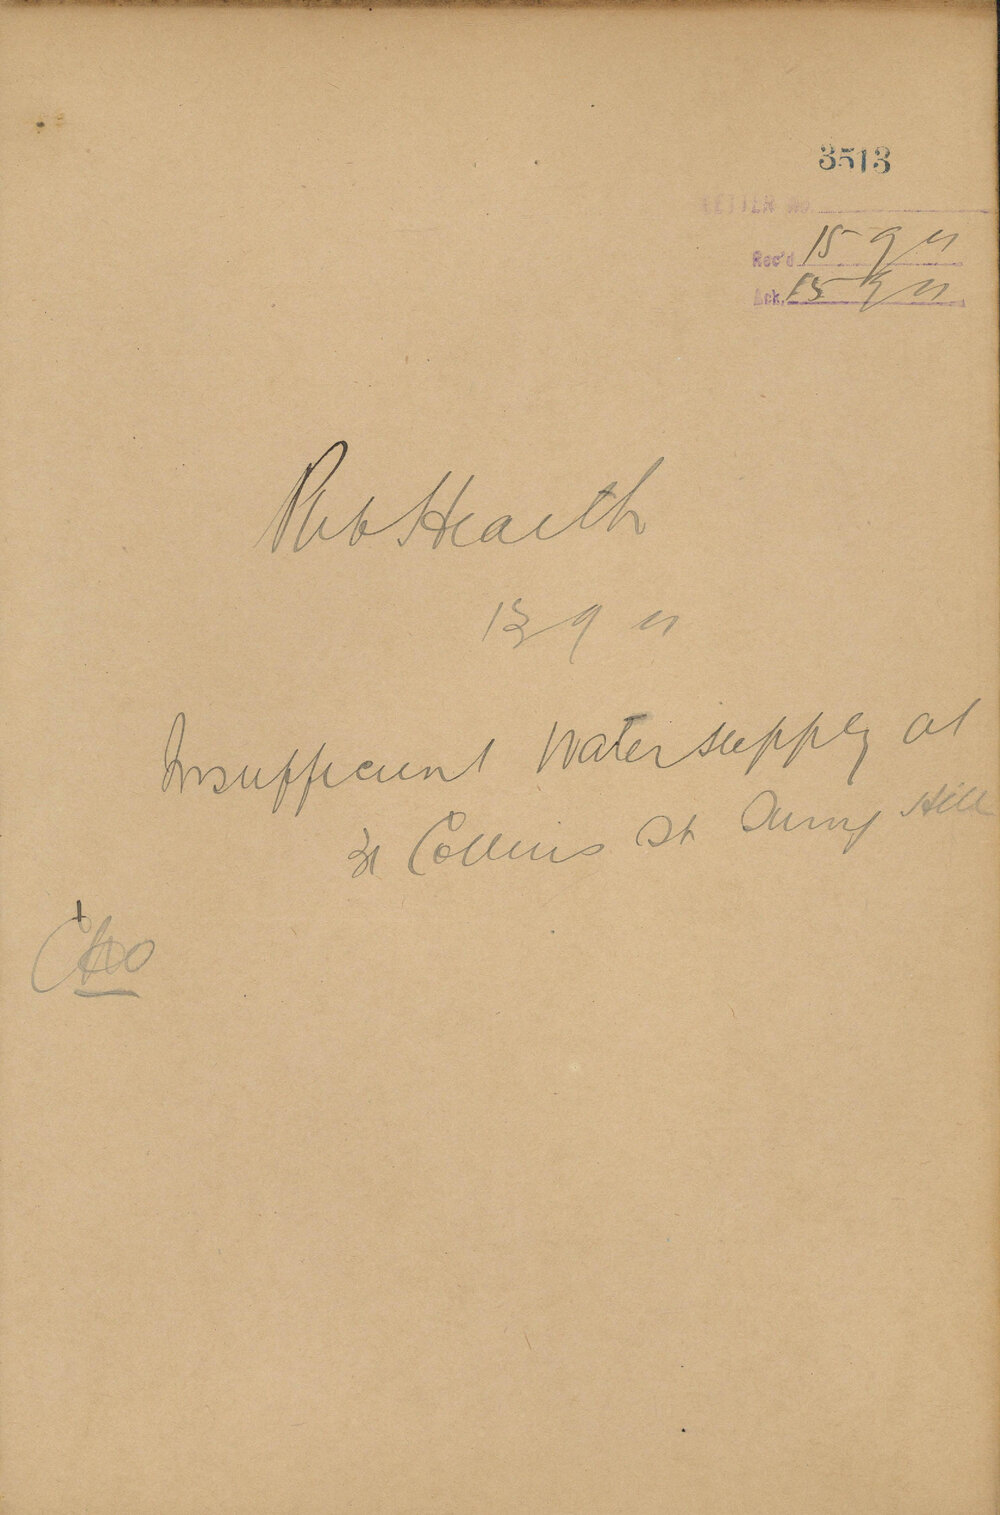 3513
LETTER No.
Rec'd 15 9 11
Ack. 15 9 11
Pub Health
13 9 11
Insufficient Water supply at
31 Collins St Surry Hill
CHO